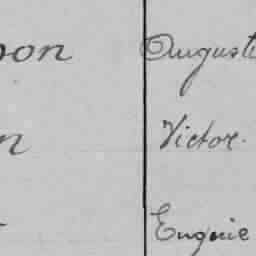 on Auguste
n Victor.
Eugnie